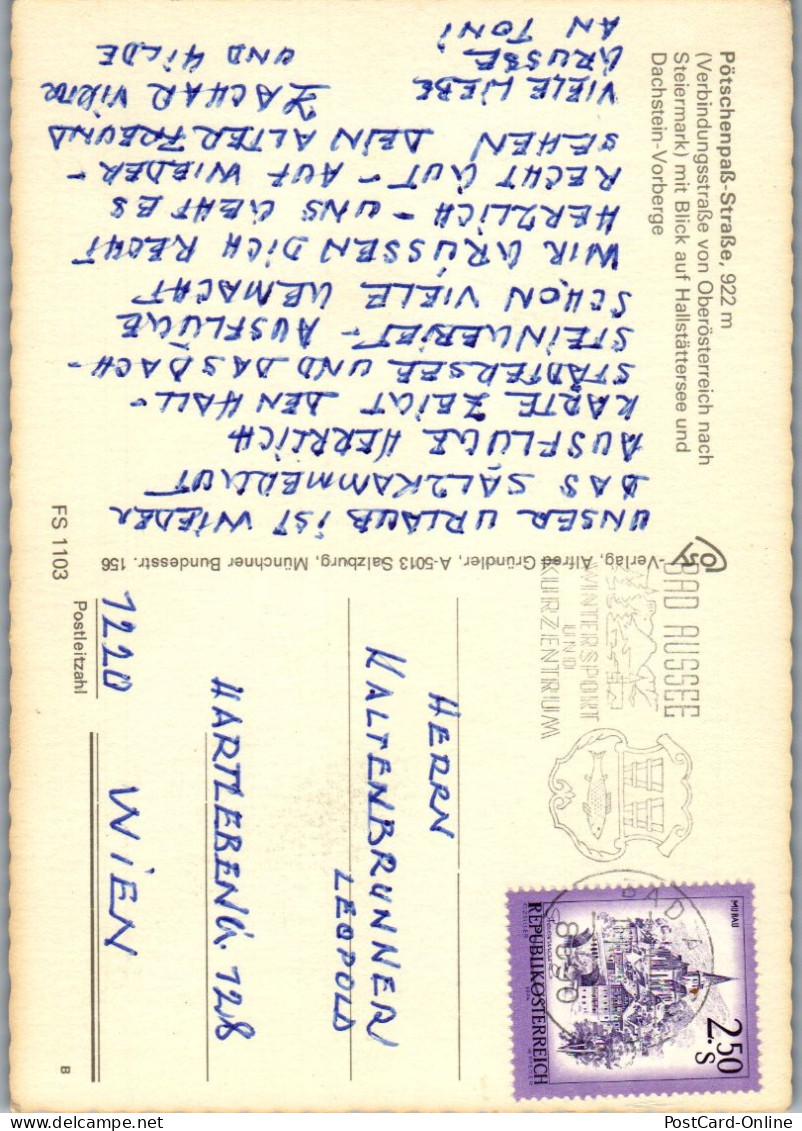 Pötschenpaß-Straße, 922 m
(Verbindungsstraße von Oberösterreich nach
Steiermark) mit Blick auf Hallstättersee und
Dachstein-Vorberge
UNSER URLAUB IST WIEDER
DAS SALZKAMMERGUT
AUSFLÜGE HERRLICH
KARTE ZEIGT DEN HALL-
STÄDTERSEE UND DAS DACH-
STEINGEBIET - AUSFLÜGE
SCHON VIELE GEMACHT
WIR GRÜSSEN DICH RECHT
HERZLICH - UNS GEHT ES
RECHT GUT - AUF WIEDER-
SEHEN DEIN ALTER FREUND
ZACHAR VIKTOR
UND HILDE
VIELE LIEBE
GRÜSSE
AN TONI
-Verlag, Alfred Gründler, A-5013 Salzburg, Münchner Bundesstr. 156
FS 1103
BAD AUSSEE
WINTERSPORT
UND
KURZENTRUM
8990
BAD A
MURAU
2.50
S
REPUBLIK ÖSTERREICH
HERRN
KALTENBRUNNER
LEOPOLD
HARTLEBENG. 128
1220 WIEN
Postleitzahl
B
PostCard-Isle.com
PostCard-Online